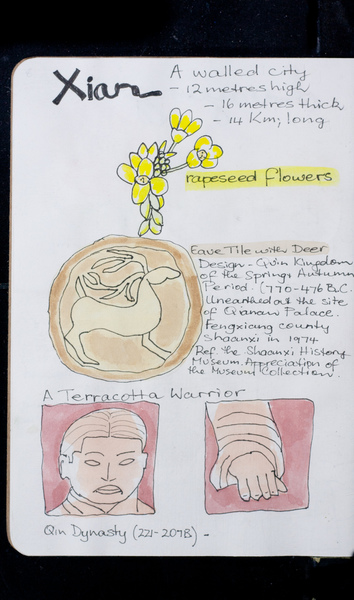 Xian
A walled city
- 12 metres high
- 16 metres thick
- 14 Km; long
rapeseed flowers
Eave Tile with Deer
Design - Quin Kingdom
of the Springs Autumn
Period. (770-476 B.C.
Unearthed at the site
of Palace.
Fengxiang county
Shaanxi in 1974
Ref. the Shaanxi History
Museum. Appreciation of
the Museum Collection.
A Terracotta Warrior
Qin Dynasty (221-207B) -